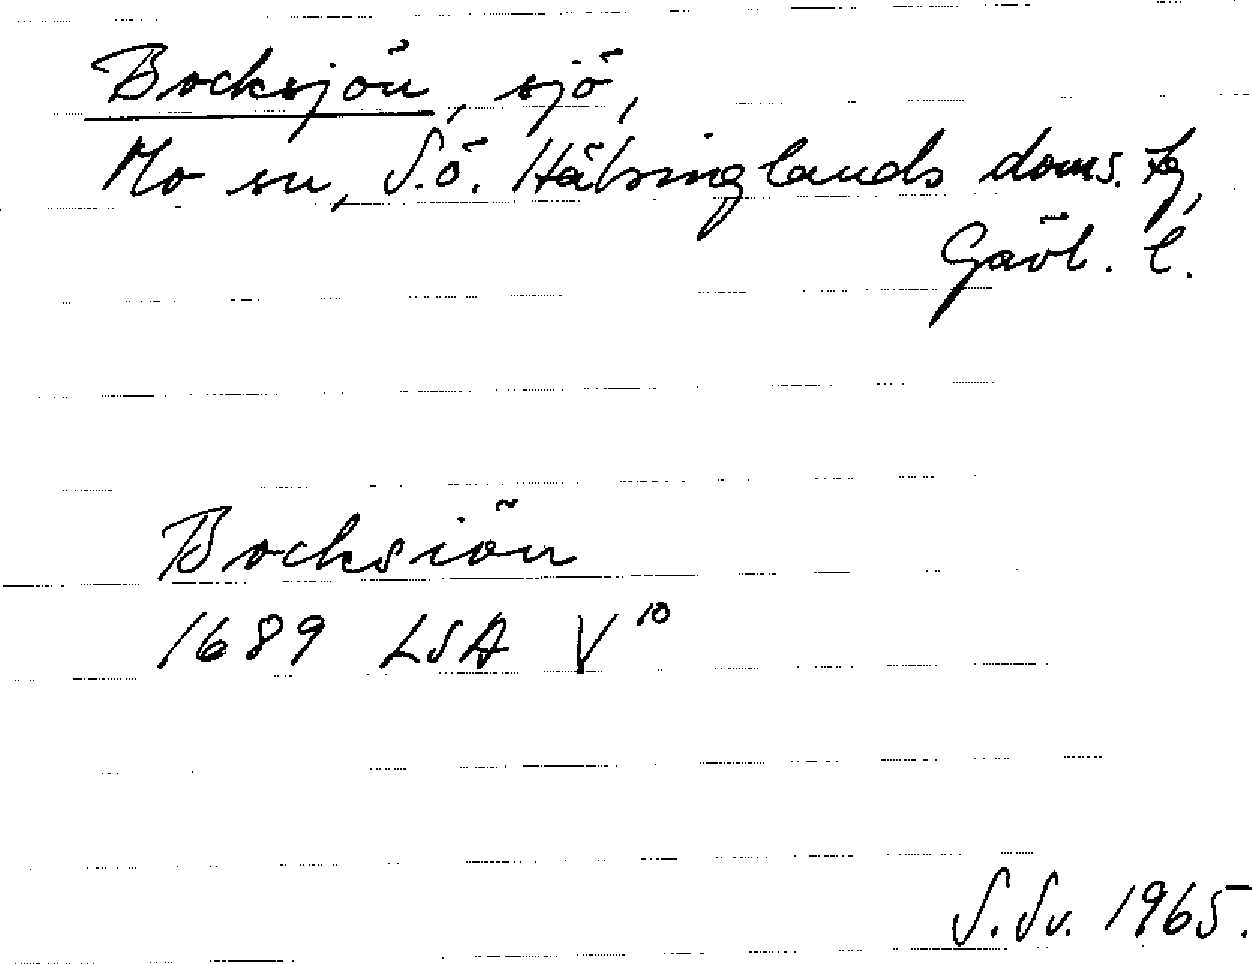 Bocksjön, sjö,
Mo sn, S.ö. Hälsinglands doms. tg,
Gävl. l.
Bocksiön
1689 LSA V¹⁰
S. Sv. 1965.